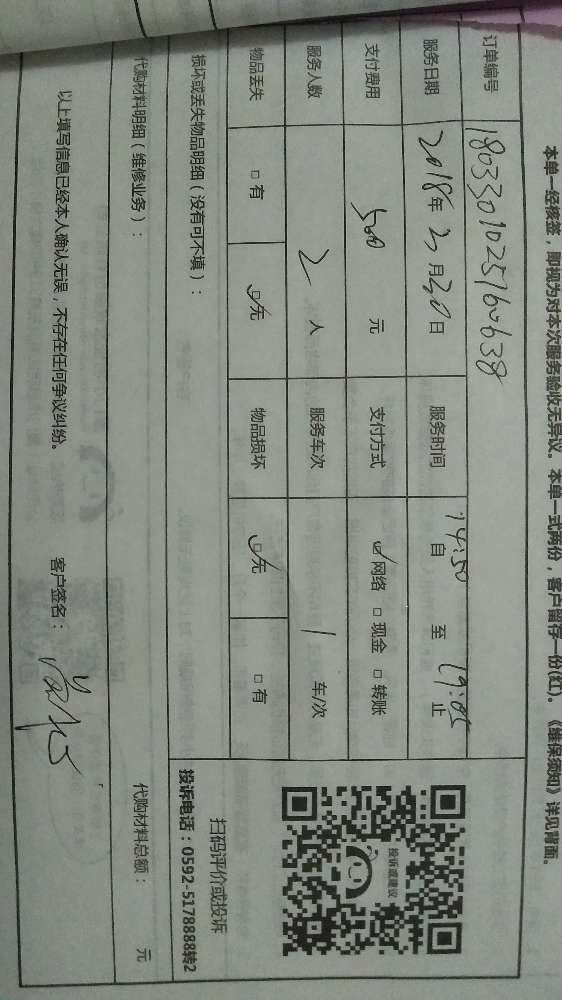 本单一经核签，即视为对本次服务验收无异议。本单一式两份，客户留存一份(红)。《维保须知》详见背面。
订单编号 1803301025160638
服务日期 2018年3月30日 服务时间 自14:50至19:05止
支付费用 500元 支付方式 ☑网络 □现金 □转账
服务人数 2人 服务车次 1车/次
物品丢失 □有 ☑无 物品损坏 ☑无 □有
投诉或建议
损坏或丢失物品明细（没有可不填）：
扫码评价或投诉
投诉电话：0592-5178888转2
代购材料明细（维修业务）： 代购材料总额： 元
以上填写信息已经本人确认无误，不存在任何争议纠纷。 客户签名：